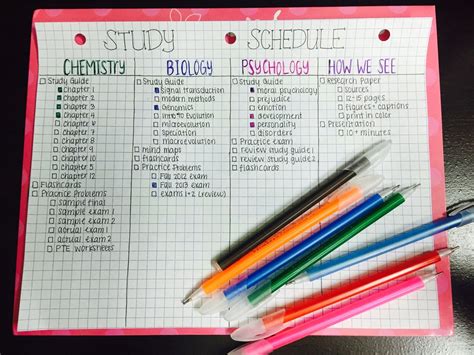 STUDY SCHEDULE
CHEMISTRY
Study Guide
Chapter 1
Chapter 2
Chapter 3
Chapter 4
Chapter
Chapter
Chapter 8
Chapter 9
Chapter
Chapter 12
Chapter 5
Flashcards
Practice Problems
sample final
sample exam 1
sample exam 2
actual exam 1
actual exam 2
PTE worksheets
BIOLOGY
Study Guide
Signal transduction
modern methods
Genomics
Intro to Evolution
microevolution
speciation
macroevolution
mind maps
flashcards
Practice Problems
Fall 2012 exam
Fall 2013 exam
exams 1+2 (review)
PSYCHOLOGY
Study Guide
moral psychology
prejudice
emotion
development
personality
disorders
Practice exam
review study guide 1
review study guide 2
flashcards
HOW WE SEE
Research Paper
sources
12-15 pages
figures + captions
print in color
Presentation
10+ minutes